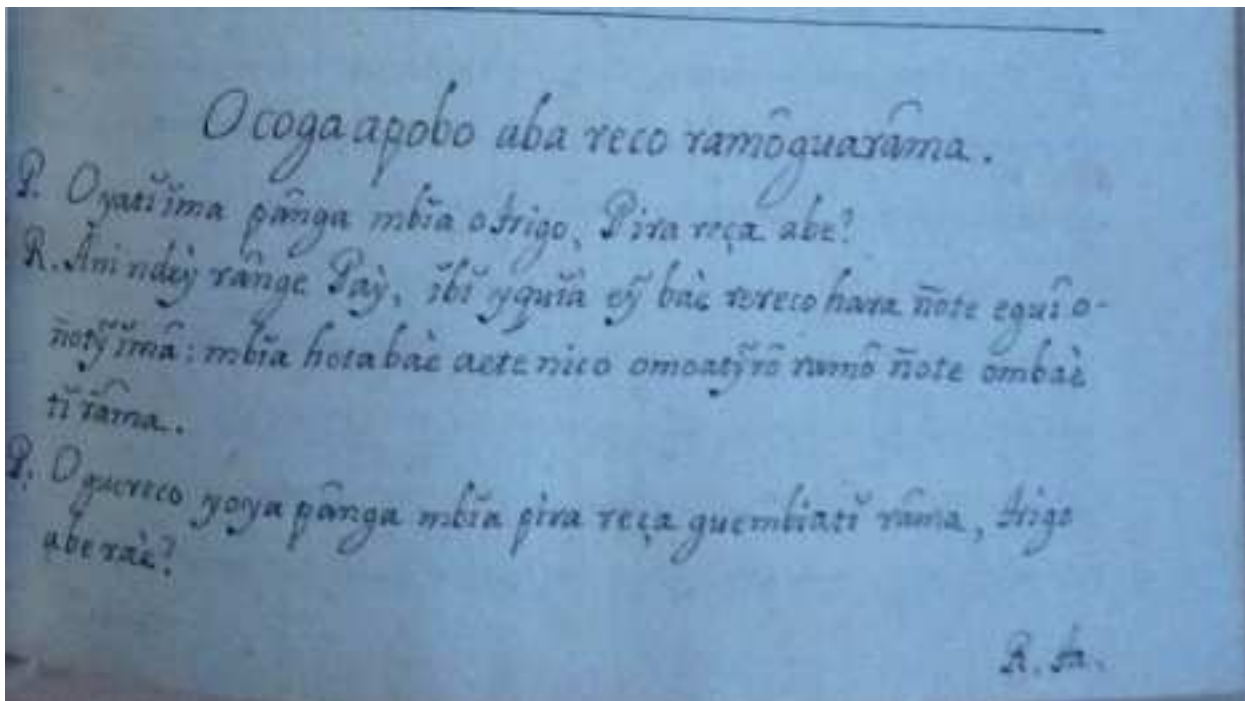 O coga apobo aba reco ramôguarâma.
P. Oyatĭ ima pânga mbĭa o trigo, Pira reça abe?
R. Ani ndeỳ rânge Paỳ, ĭbĭ yquĭà eỹ baè rereco hara ñote eguî o-
ñotỹ ĭmâ: mbĭa hetabaè aete nico omoatỹrô ramô ñote ombaè
tĭ râma.
P. Oguereco yoya pânga mbĭa pira reça guembiatĭ râma, trigo
abe raè?
R. Ta.